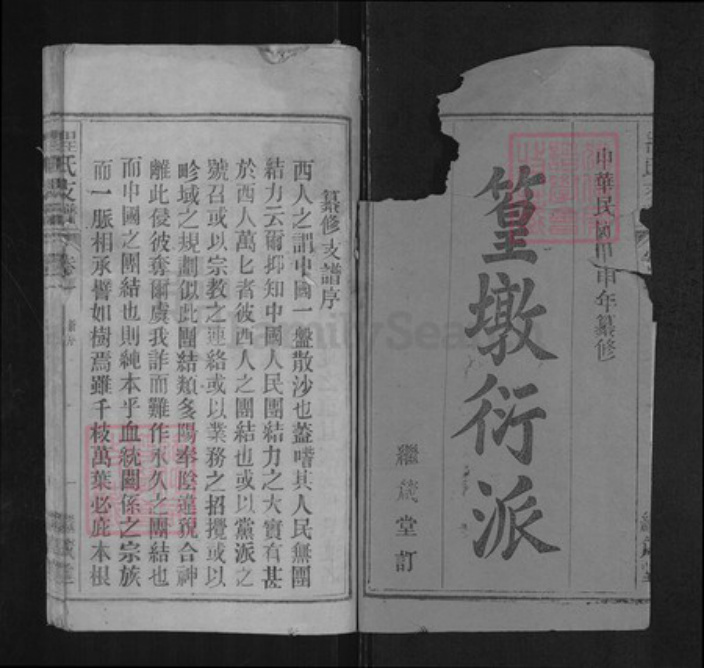 中華民國甲申年纂修
篁墩衍派
繼箴堂訂
纂修支譜序
西人之謂中國一盤散沙也蓋嗜其人民無團
結力云爾抑知中國人民團結力之大實有甚
於西人萬匕者彼西人之團結也或以黨派之
號召或以宗教之連絡或以業務之招攬或以
畛域之規劃似此團結類多陽奉陰違貌合神
離此侵彼奪爾虞我詐而難作永久之團結也
而中國之團結也則純本乎血統關係之宗族
而一脈相承譬如樹焉雖千枝萬葉必庇本根
程氏支譜
卷一
FamilySearch